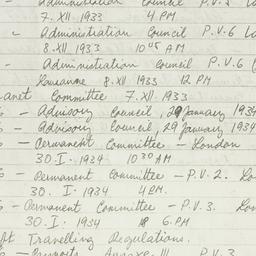 Administration Council P.V.5
7.XII 1933 4 PM
- Administration Council P.V.6
8.XII 1933 10⁰⁵ AM
- Administration Council P.V.6
Lausanne 8.XII 1933 12 PM
Committee 7.XII.1933
- Advisory Council, 29 January 1934
- Advisory Council, 29 January 1934
- Permanent Committee - London
30.I.1934 10³⁰ AM
- Permanent Committee - P.V.2.
30.I.1934 4 P.M.
- Permanent Committee - P.V.3.
30.I.1934 6 P.M.
Travelling Regulations.
Annexe III P.V.3